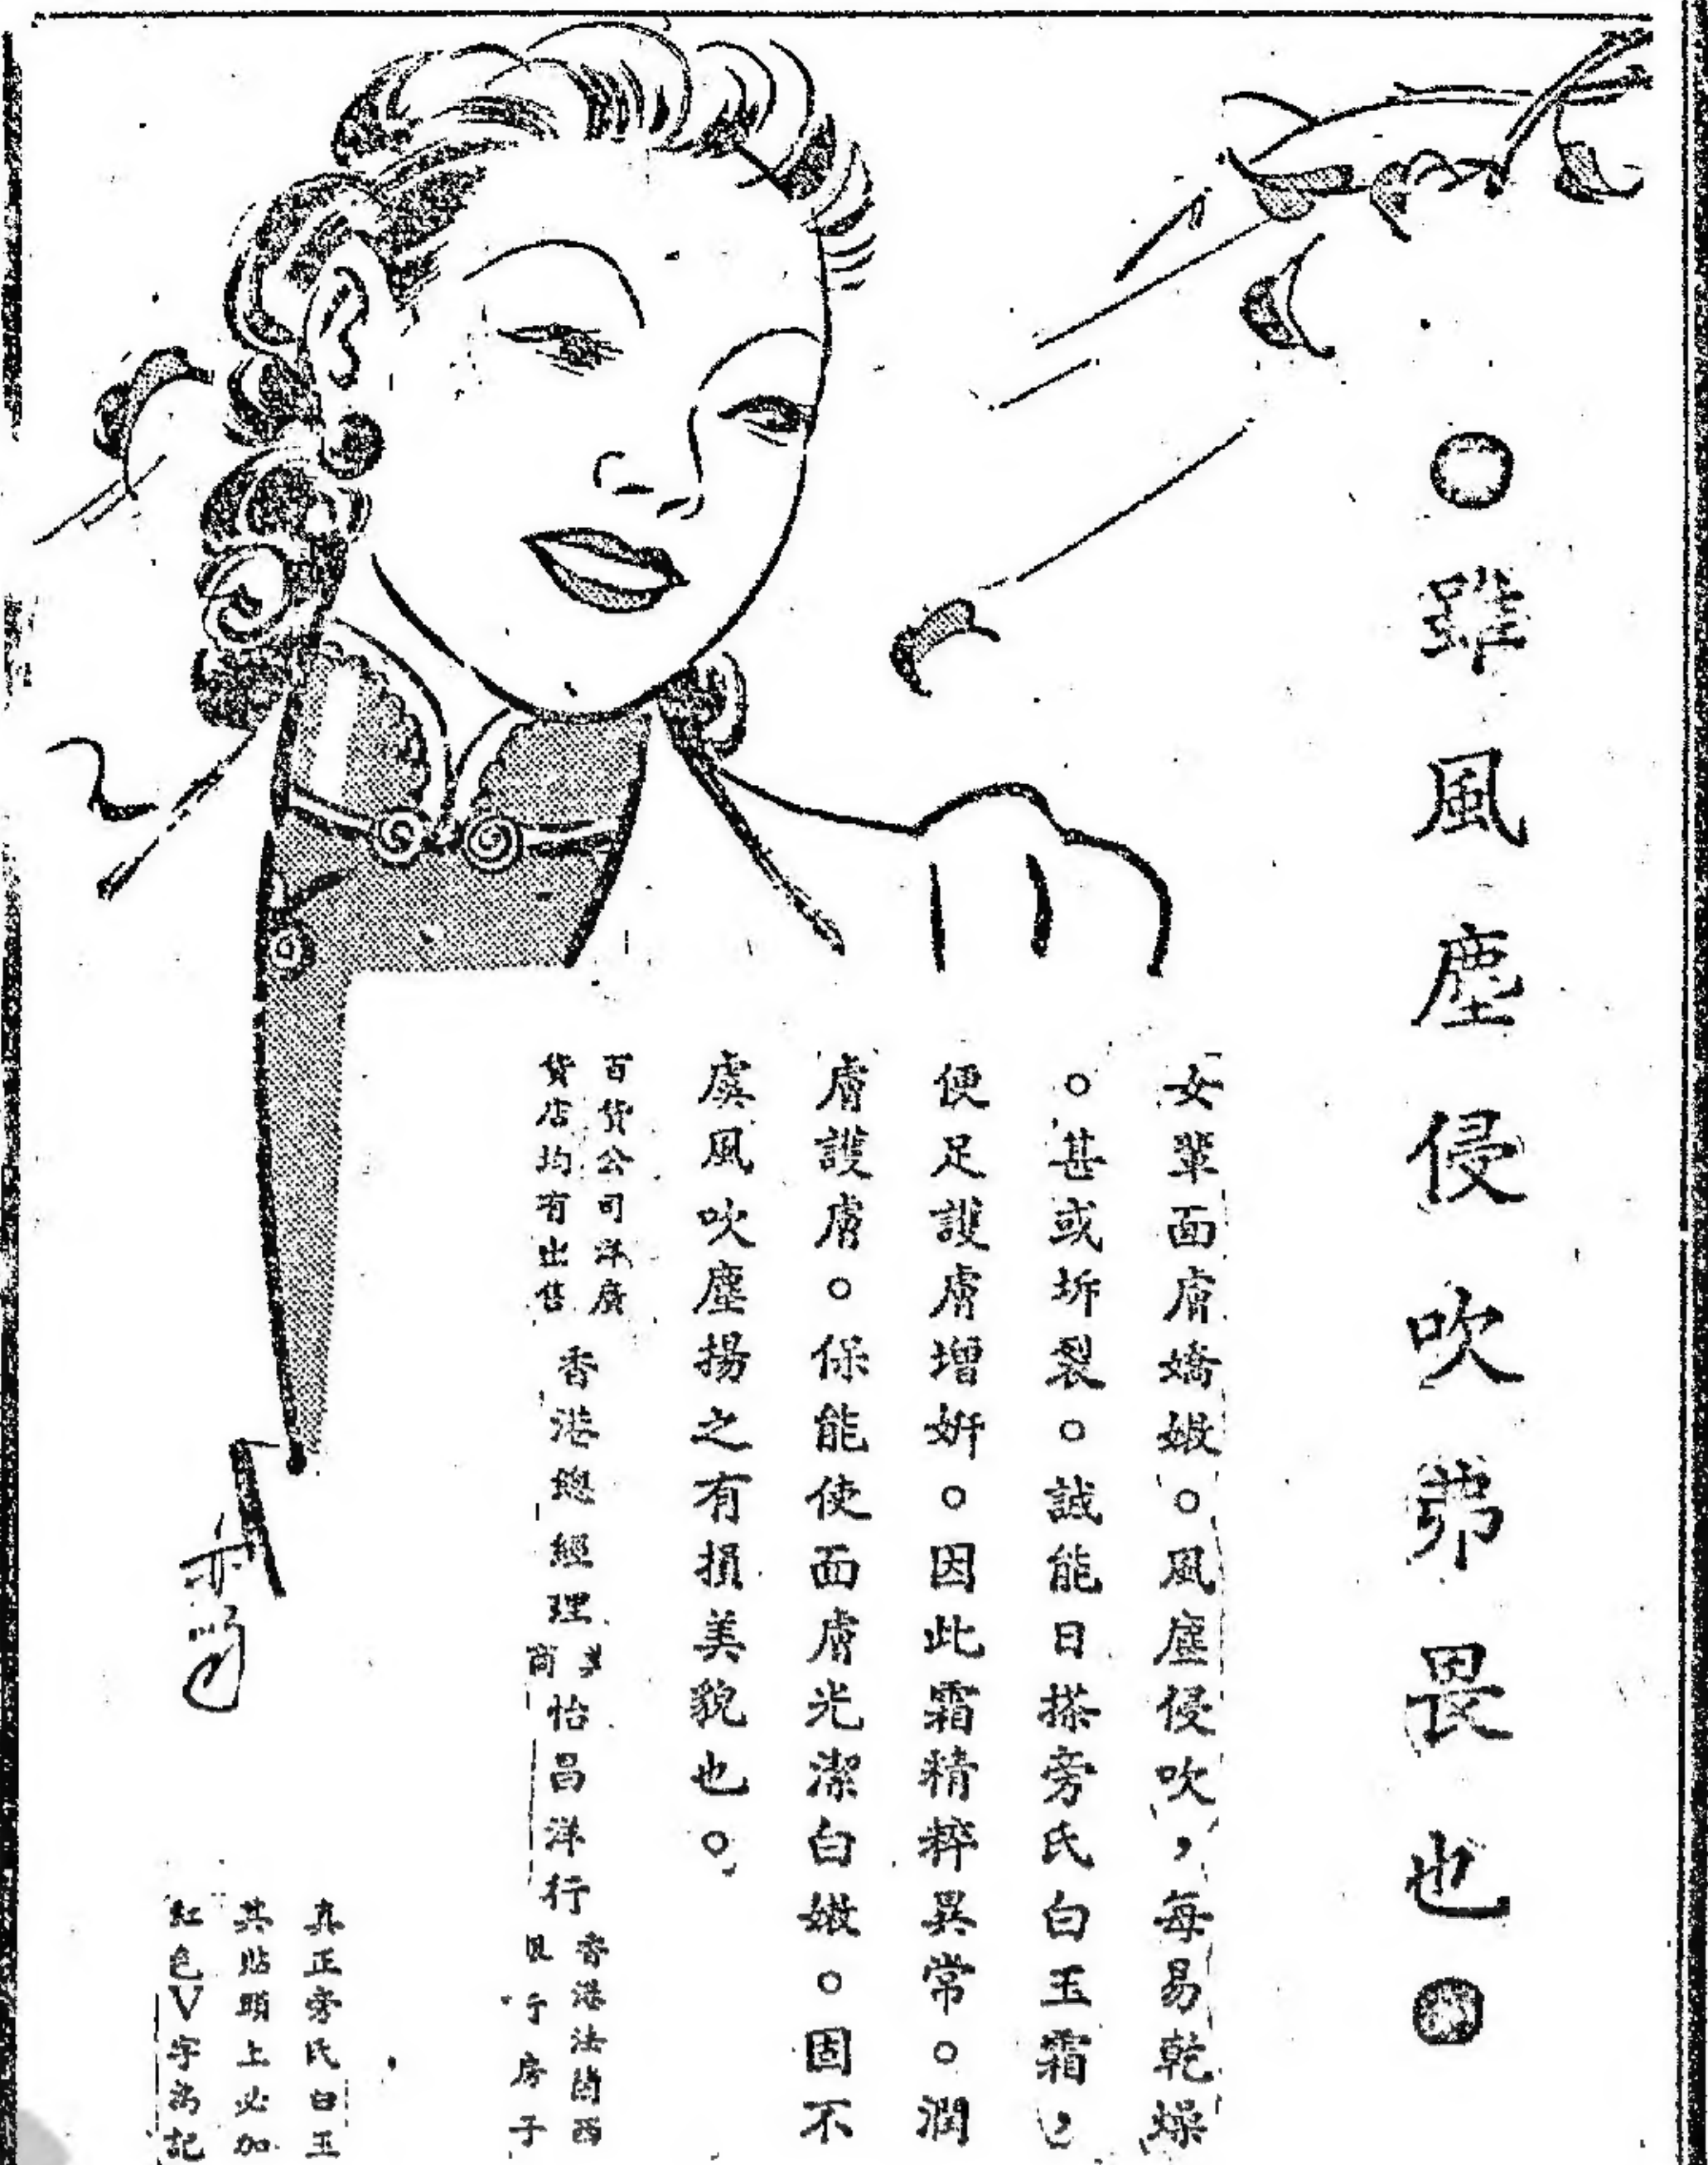 ○雖風塵侵吹弗畏也
女輩面膚嬌嫩。風塵侵吹，每易乾燥
。甚或坼裂。誠能日搽旁氏白玉霜，
便足護膚增妍。因此霜精粹異常。潤
膚護膚。保能使面膚光潔白嫩。固不
虞風吹塵揚之有損美貌也。
百貨公司洋廣
貨店均有出售
香港總經理
商
怡昌洋行
香港法國西
行房子
真正旁氏白玉
其貼頭上必加
紅色V字為記